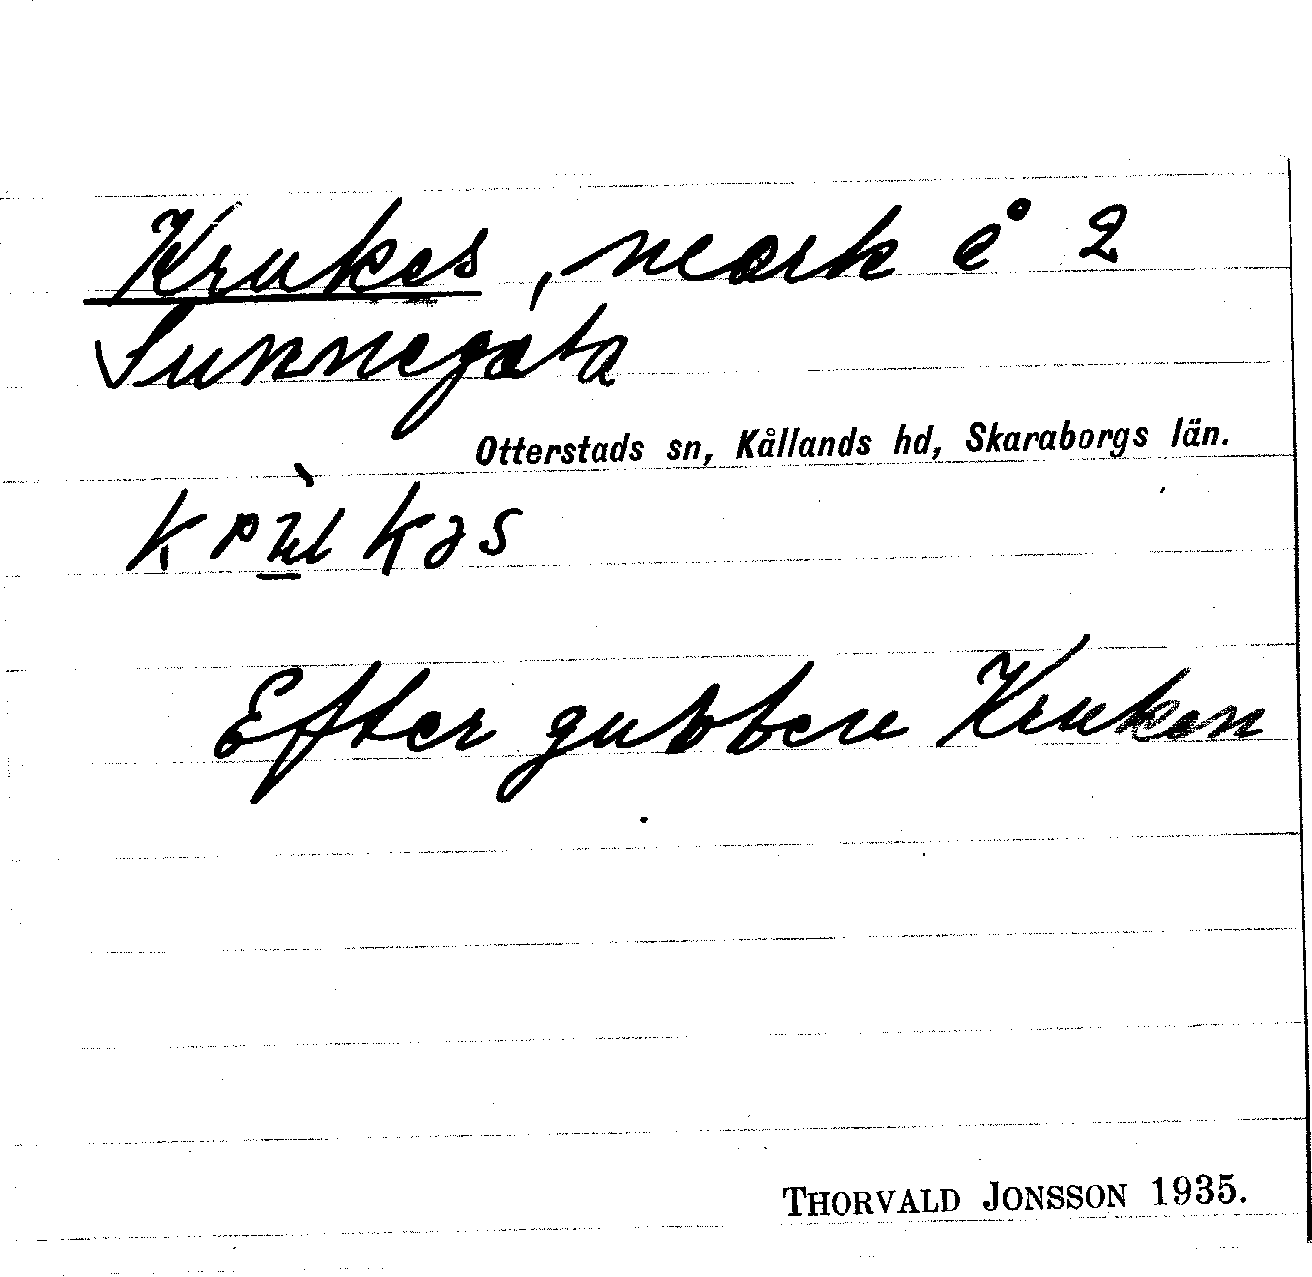 Krukes, mark å 2
Sunnegata
Otterstads sn, Kållands hd, Skaraborgs län.
Efter gubben Kruken
THORVALD JONSSON 1935.